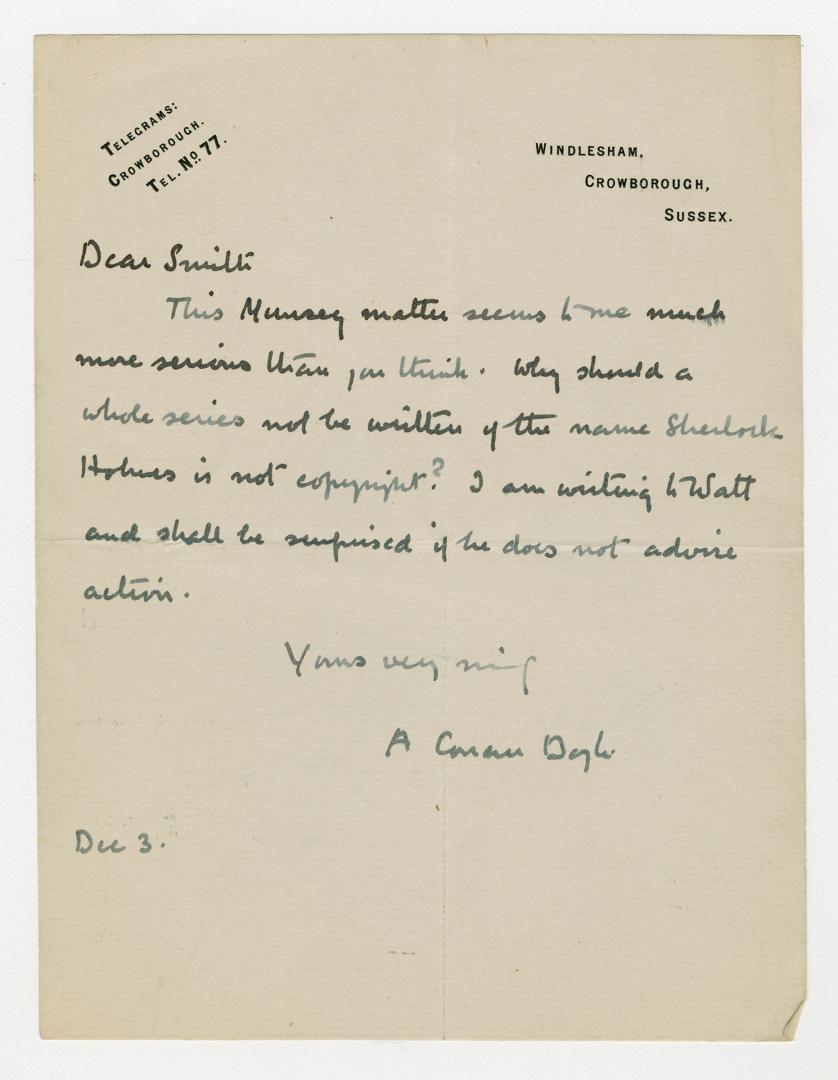 TELEGRAMS:
CROWBOROUGH.
TEL. No. 77.
WINDLESHAM,
CROWBOROUGH,
SUSSEX.
Dear Smith
This Munsey matter seems to me much
more serious than you think. Why should a
whole series not be written if the name Sherlock
Holmes is not copyright? I am writing to Watt
and shall be surprised if he does not advise
action.
Yours very
A Conan Doyle
Dec 3.